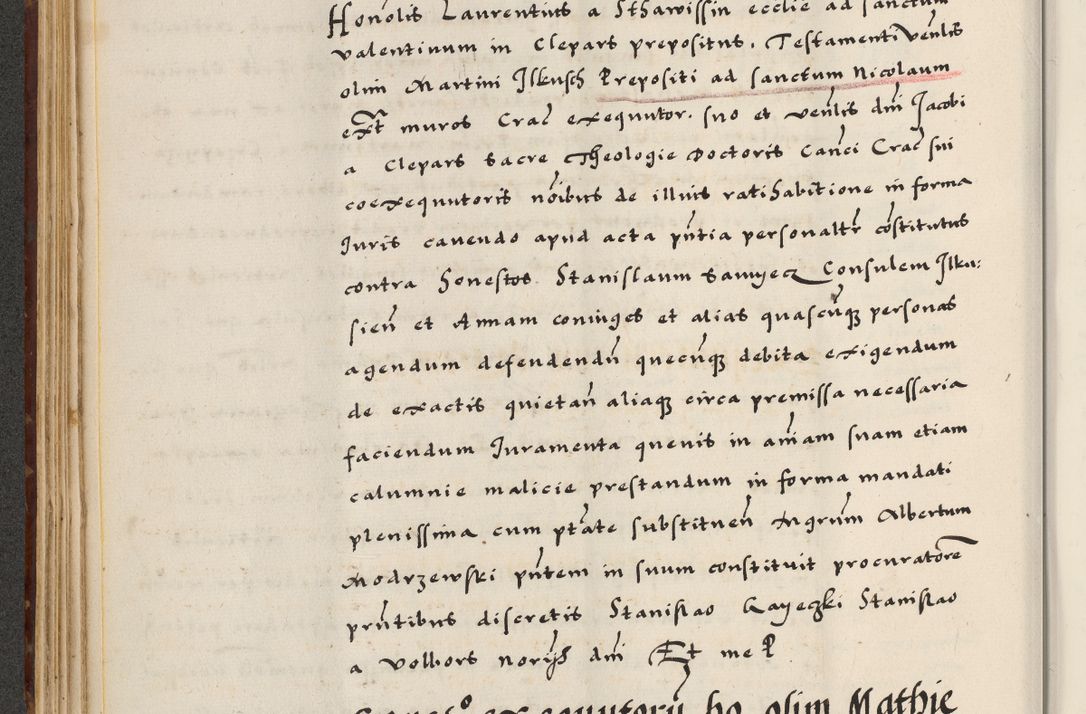 Honolis Laurentius a Sthawissin ecclie ad sanctum
valentinum in Clepars prepositus. Testamenti venlis
olim Martini Ilkusch Prepositi ad sanctum Nicolaum
ext muros Crac exequutor. suo et venlis dni Jacobi
a Clepars Sacre Theologie Doctoris Canci Crac sui
coexequutoris noibus de illius ratihabitione in forma
Iuris cavendo apud acta pntia personaltr constitutus
contra honestos Stanislaum Samyecz Consulem Ilku:
sien et Annam coniuges et alias quascunqz personas
agendum defendendu quecunqz debita exigendum
de exactis quietan aliaqz circa premissa necessaria
faciendum Iuramenta quevis in aniam suam etiam
calumnie malicie prestandum in forma mandati
plenissima cum ptate substituen Mgrum Albertum
Modrzewski pntem in suum constituit procuratore
prntibus discretis Stanislao Gayeczki Stanislao
a Volbors norijs dni Et me P
exequutoru bo olim Mathie